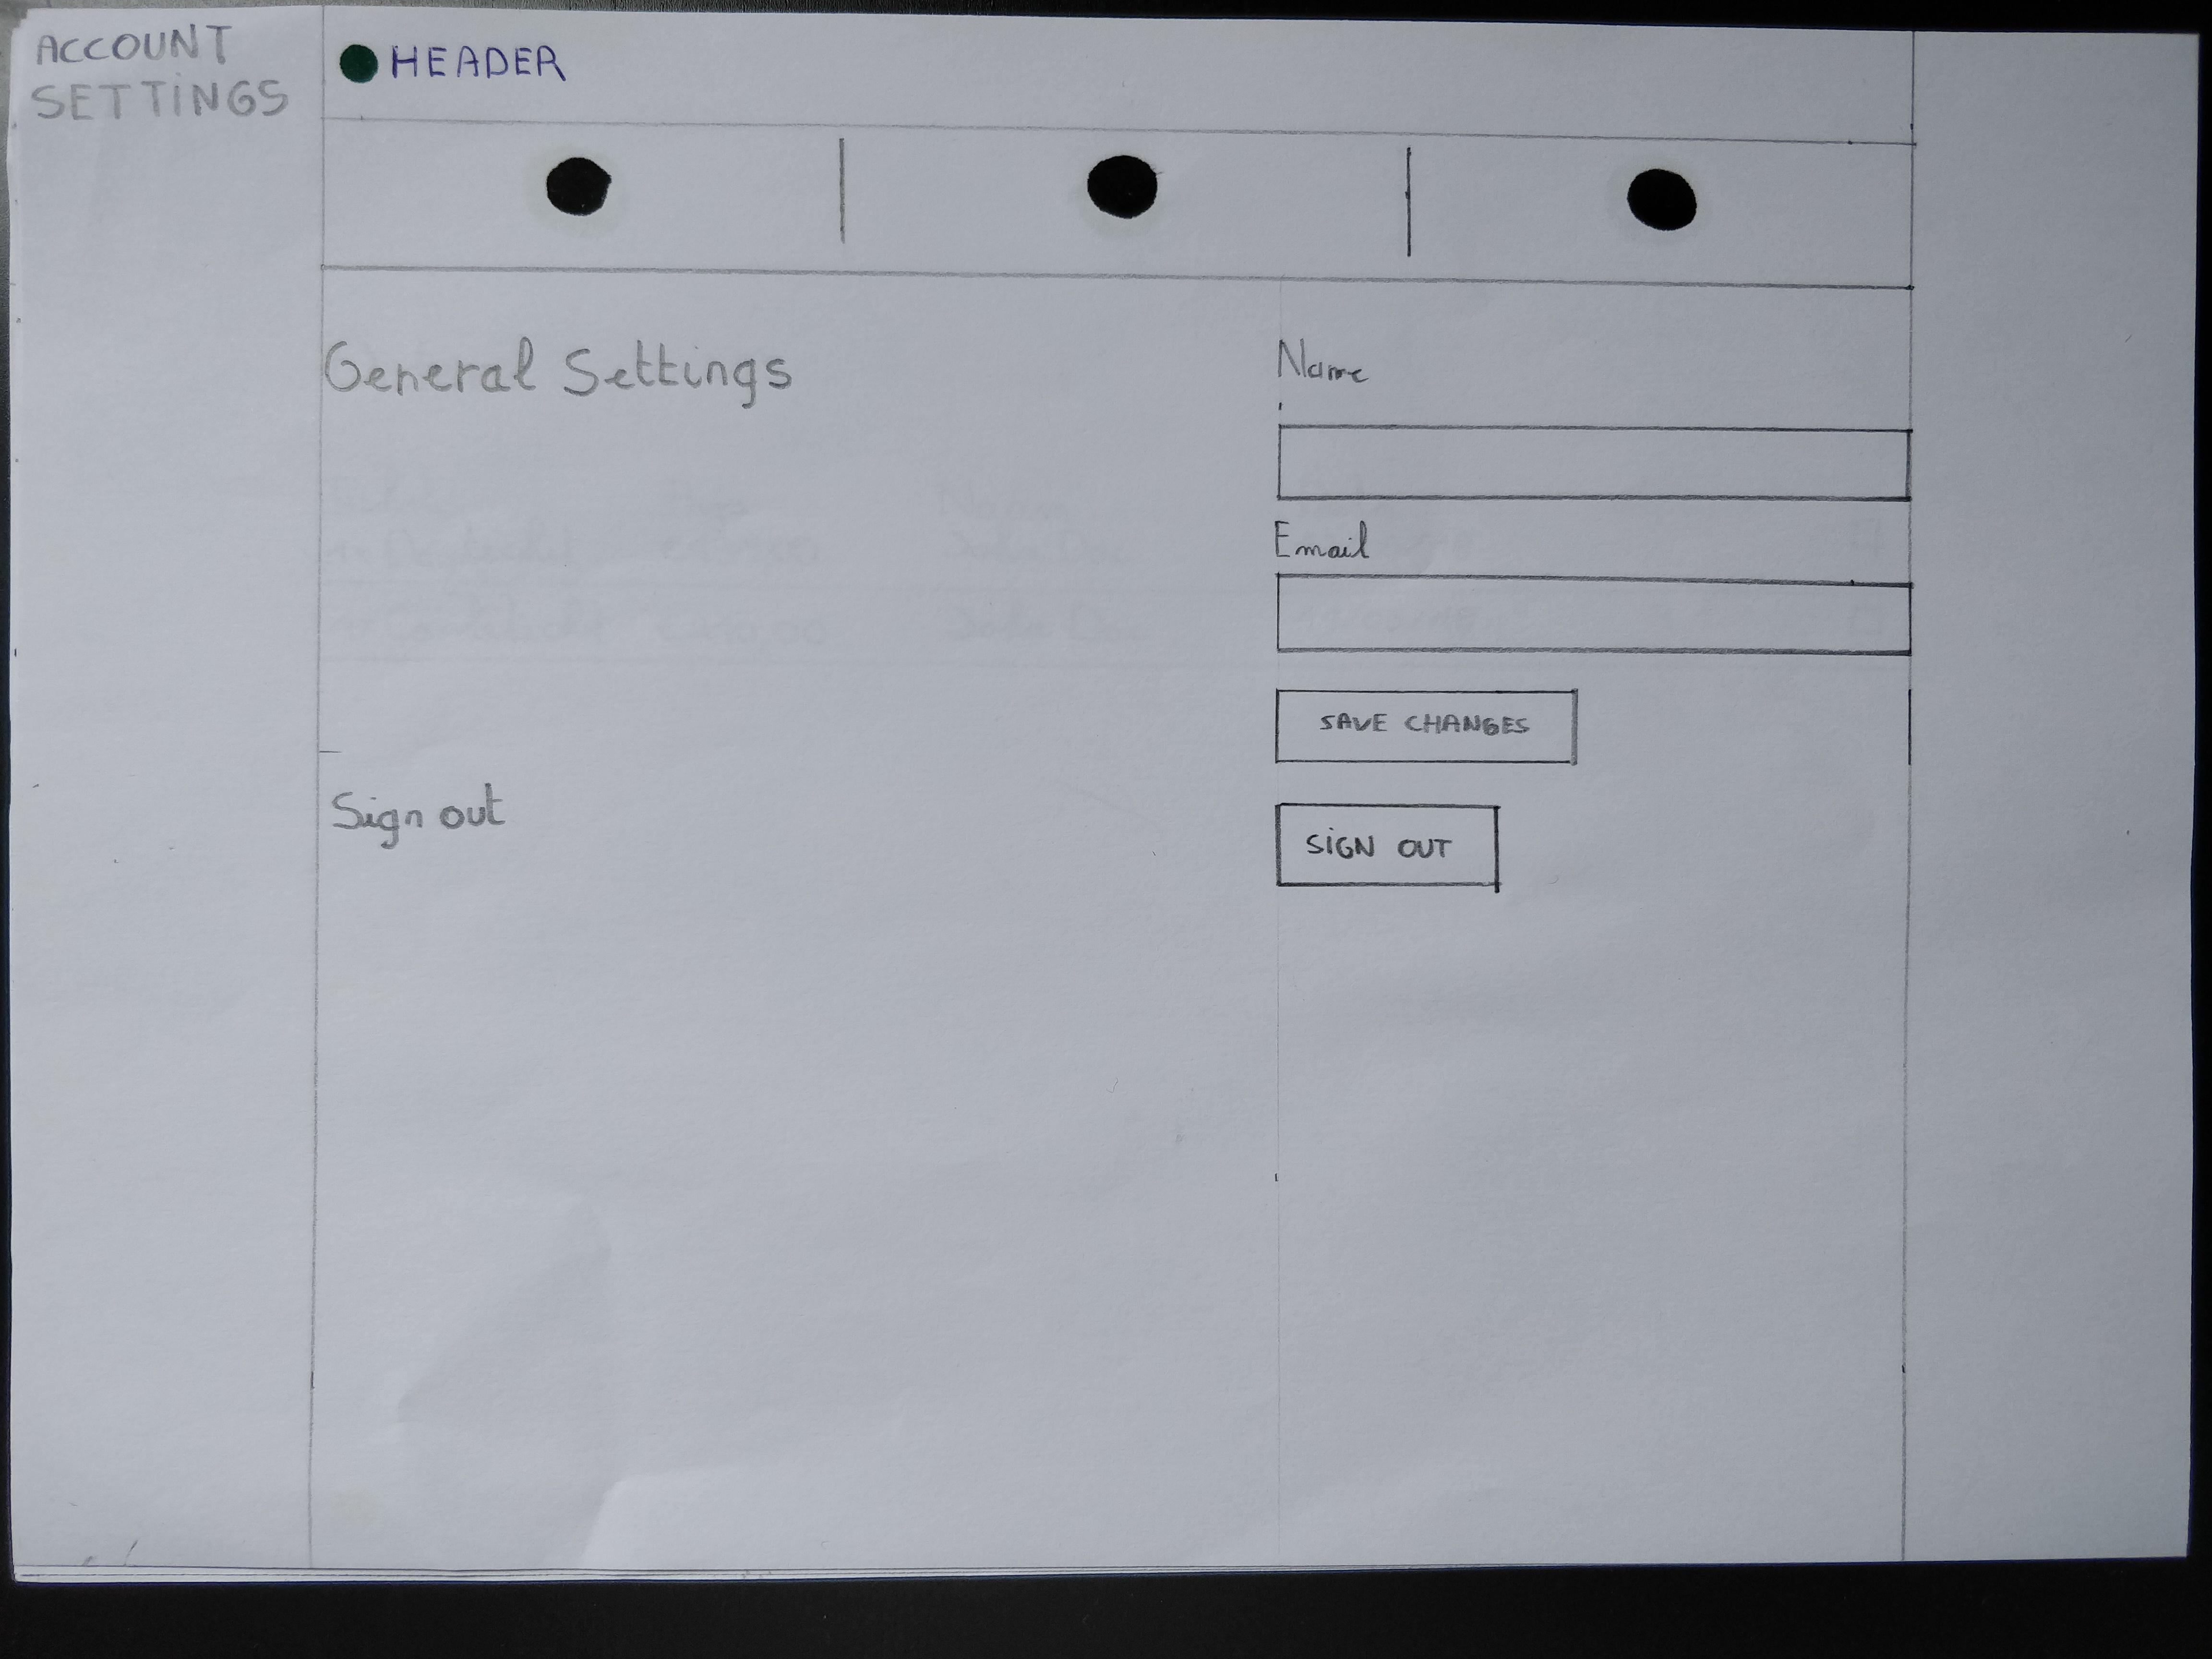 ACCOUNT
SETTINGS
HEADER
General Settings
Name
Email
SAVE CHANGES
Sign out
SIGN OUT